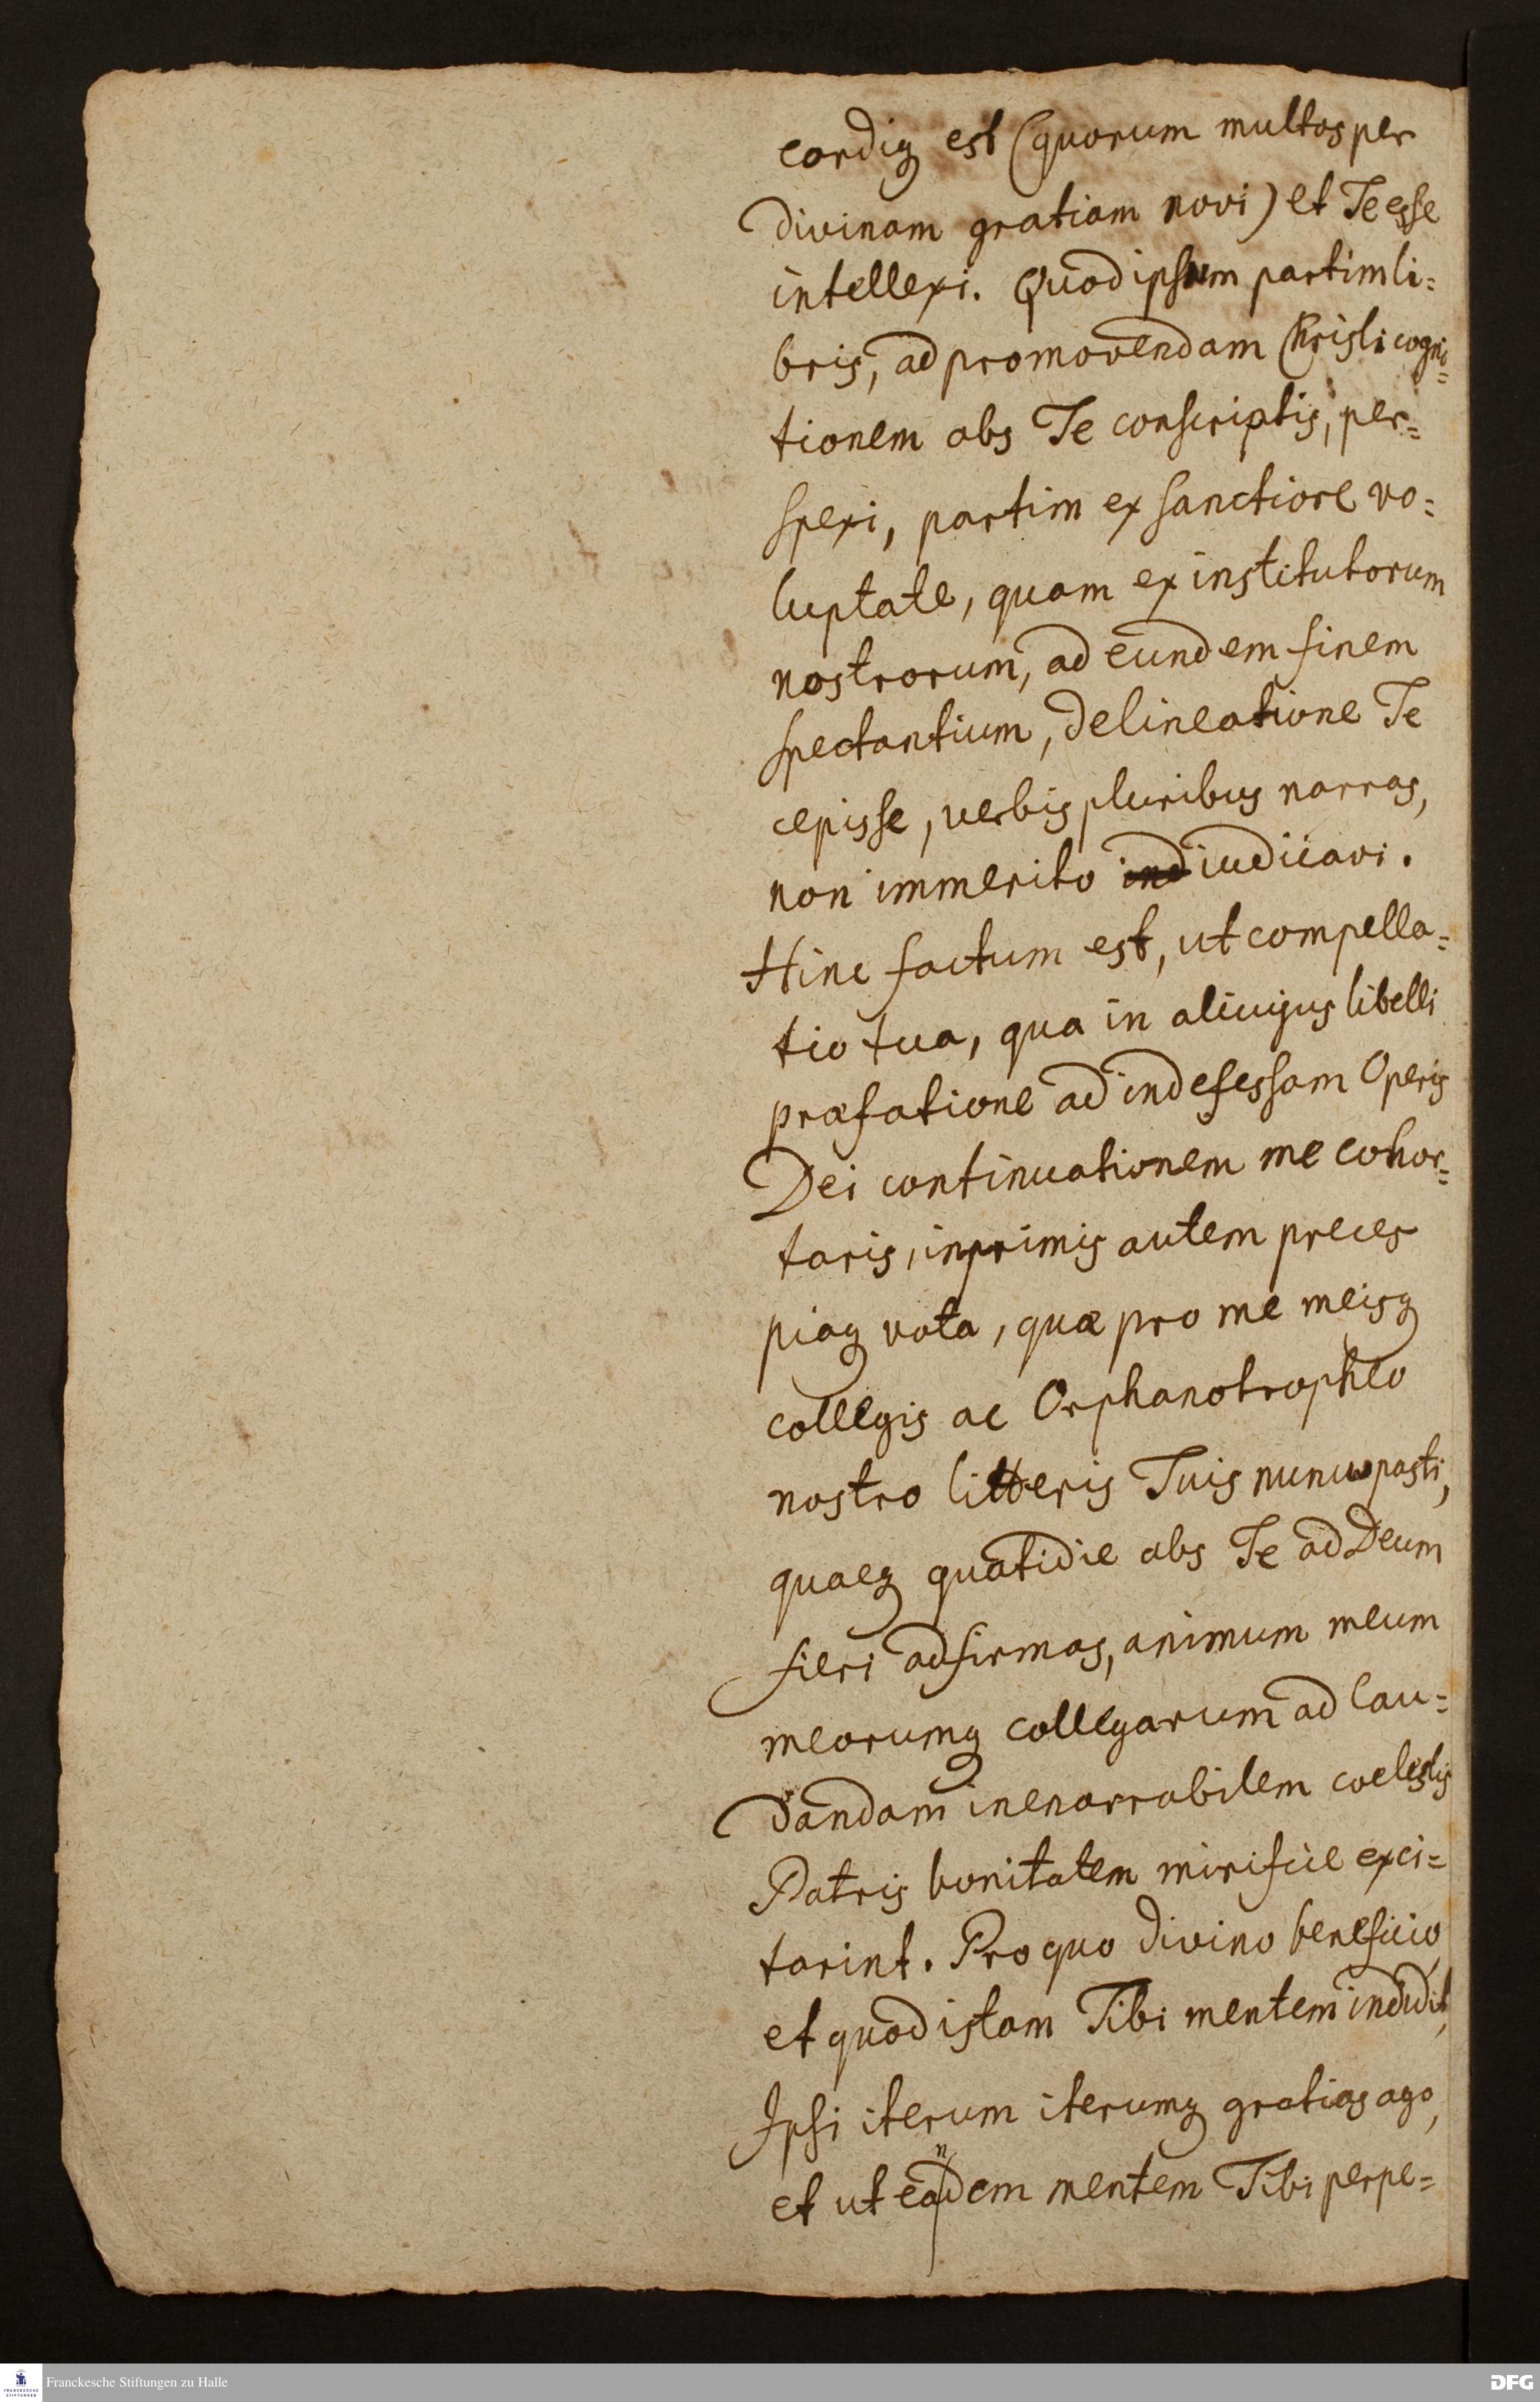 cordiq; est (quorum multos per
divinam gratiam novi) et Te esse
intellexi. Quod ipsum partim li=
bris, ad promovendam Christi cogni=
tionem abs Te conscriptis, per=
spexi, partim ex sanctiore vo=
luptate, quam ex institutorum
nostrorum, ad eundem finem
spectantium, delineatione Te
cepisse, verbis pluribus narras,
non immerito ind iudicavi.
Hinc factum est, ut compella=
tio tua, qua in alicujus libelli
præfatione ad indefessam Operis
Dei continuationem me cohor=
taris, inprimis autem preces
piaq; vota, quæ pro me meisq;
collegis ac Orphanotropheo
nostro litteris Tuis nuncupasti,
quæq; quotidie abs Te ad Deum
fieri adfirmas, animum meum
meorumq; collegarum ad lau=
dandam inenarrabilem coelestis
Patris bonitatem mirifice exci=
tarint. Pro quo divino beneficio,
et quod istam Tibi mentem indidit,
Ipsi iterum iterumq; gratias ago,
et ut eandem mentem Tibi perpe=
Franckesche Stiftungen zu Halle
DFG